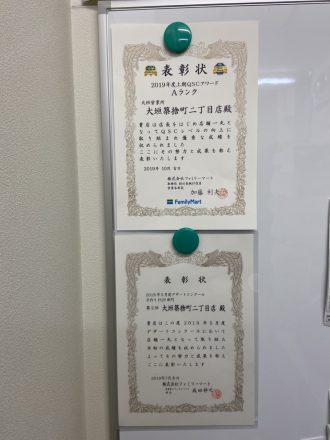 表彰状
2019年度上期QSCアワード
Aランク
大垣営業所
大垣築捨町二丁目店殿
貴店は店長をはじめ店舗一丸と
なってQSCレベルの向上に
取り組まれ優秀な成績を
収められました
ここにその努力と成果を称え
表彰いたします
2019年10月吉日
株式会社ファミリーマート
加藤利夫
FamilyMart
表彰状
2019年5月度デザートコンクール
第五位
大垣築捨町二丁目店殿
貴店はこの度2019年5月度
デザートコンクールにおいて
店舗一丸となって取り組み
の成績を収められました
よってその努力と成果を称え
ここに表彰いたします
2019年7月吉日
株式会社ファミリーマート